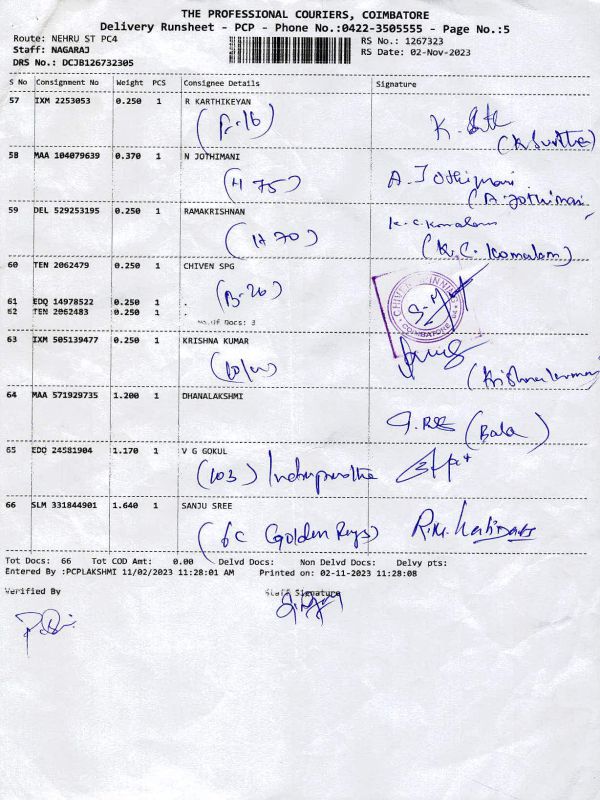 THE PROFESSIONAL COURIERS, COIMBATORE
Delivery Runsheet - PCP - Phone No.:0422-3505555 - Page No.:5
Route: NEHRU ST PC4 RS No.: 1267323
Staff: NAGARAJ RS Date: 02-Nov-2023
DRS No.: DCJB126732305
S No Consignment No Weight PCS Consignee Details Signature
57 IXM 2253053 0.250 1 R KARTHIKEYAN
58 MAA 104079639 0.370 1 N JOTHIMANI
(H 75) A. Jothimani
(A. Jothimani
59 DEL 529253195 0.250 1 RAMAKRISHNAN K.C. Komalam
(H 70) (K.C. Komalam)
60 TEN 2062479 0.250 1 CHIVEN SPG
(B-26) CHIVEN
61 EDQ 14978522 0.250 1 .
62 TEN 2062483 0.250 1 . COIMBATORE
No.Of Docs: 3
63 IXM 505139477 0.250 1 KRISHNA KUMAR
64 MAA 571929735 1.200 1 DHANALAKSHMI
(Bala)
65 EDQ 24581904 1.170 1 V G GOKUL
(103)
66 SLM 331844901 1.640 1 SANJU SREE
(6C Golden Rays)
Tot Docs: 66 Tot COD Amt: 0.00 Delvd Docs: Non Delvd Docs: Delvy pts:
Entered By :PCPLAKSHMI 11/02/2023 11:28:01 AM Printed on: 02-11-2023 11:28:08
Verified By Staff Signature